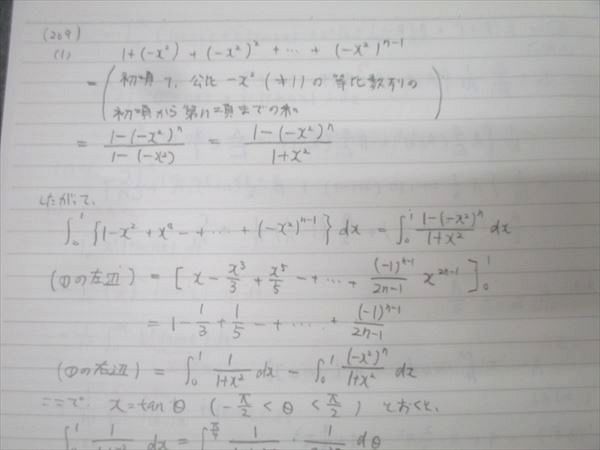 (209)
(1) 1+(-x²)+(-x²)²+…+(-x²)ⁿ⁻¹
=(初項1, 公比 -x² (≠1) の等比数列の
初項から第n項までの和)
= \frac{1-(-x²)ⁿ}{1-(-x²)} = \frac{1-(-x²)ⁿ}{1+x²}
したがって,
∫₀¹ {1-x²+x⁴-+…+(-x²)ⁿ⁻¹} dx = ∫₀¹ \frac{1-(-x²)ⁿ}{1+x²} dx
(①の左辺) = [x - \frac{x³}{3} + \frac{x⁵}{5} -+…+ \frac{(-1)ⁿ⁻¹}{2n-1} x²ⁿ⁻¹]₀¹
= 1 - \frac{1}{3} + \frac{1}{5} -+…+ \frac{(-1)ⁿ⁻¹}{2n-1}
(①の右辺) = ∫₀¹ \frac{1}{1+x²} dx - ∫₀¹ \frac{(-x²)ⁿ}{1+x²} dx
ここで x=tanθ (-\frac{π}{2} < θ < \frac{π}{2}) とおくと,
dx = ∫ dθ